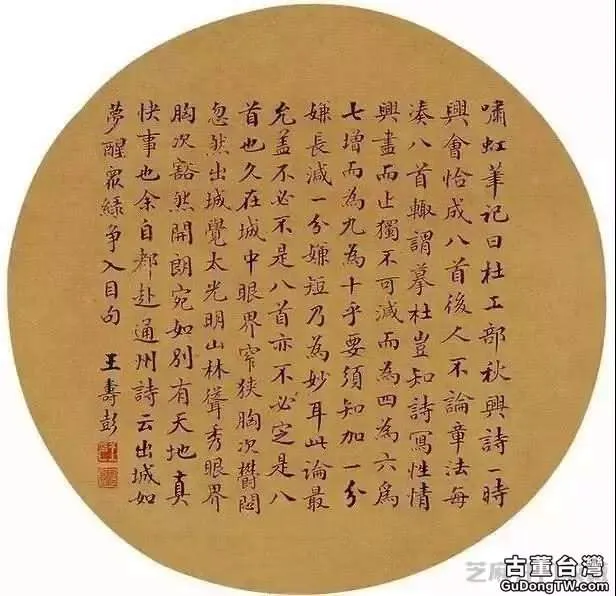 嘯虹筆記曰杜工部秋興詩一時
興會恰成八首後人不論章法每
湊八首輒謂摹杜豈知詩寫性情
興盡而止獨不可減而為四為六為
七增而為九為十乎要須知加一分
嫌長減一分嫌短乃為妙耳此論最
允蓋不必不是八首亦不必定是八
首也久在城中眼界窄狹胸次鬱悶
忽然出城覺太光明山林聳秀眼界
胸次豁然開朗宛如別有天地真
快事也余自都赴通州詩云出城如
夢醒眾綠爭入目句
王壽彭
芝麻
古董台灣
GuDongTW.com